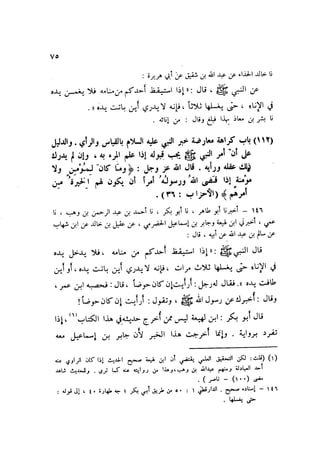 ٧٥
نا خالد الحذاء عن عبد الله بن شقيق عن أبي هريرة :
عن النبي ﷺ ، قال : « إذا استيقظ أحدكم من منامه فلا يغمسن يده
في الإناء ، حتى يغسلها ثلاثاً ، فإنه لا يدري أين باتت يده » .
نا بشر بن معاذ بهذا فبلغ وقال : من إنائه .
(١١٢) باب كراهة معارضة خبر النبي عليه السلام بالقياس والرأي . والدليل
على أن أمر النبي ﷺ يجب قبوله إذا علم المرء به ، وإن لم يدرك
ذلك عقله ورأيه . قال الله عز وجل : ﴿ وما كان لمؤمن ولا
مؤمنة إذا قضى الله ورسوله أمراً أن يكون لهم الخيرة من
أمرهم ﴾ (الأحزاب : ٣٦) .
١٤٦ – أخبرنا أبو طاهر ، نا أبو بكر ، نا أحمد بن عبد الرحمن بن وهب ، نا
عمي ، أخبرني ابن لهيعة وجابر بن إسماعيل الحضرمي ، عن عقيل بن خالد عن ابن شهاب
عن سالم بن عبد الله عن أبيه ، قال :
قال النبي ﷺ : « إذا استيقظ أحدكم من منامه ، فلا يدخل يده
في الإناء حتى يغسلها ثلاث مرات ، فإنه لا يدري أين باتت يده ، أو أين
طافت يده » . فقال له رجل : أرأيت إن كان حوضاً ، قال : فحصبه ابن عمر ،
وقال : أخبرك عن رسول الله ﷺ ، وتقول : أرأيت إن كان حوضاً ؟
قال أبو بكر : ابن لهيعة ليس ممن أخرج حديثه في هذا الكتاب (١) ، إذا
تفرد برواية . وإنما أخرجت هذا الخبر لأن جابر بن إسماعيل معه
(١) (قلت : لكن التحقيق العلمي يقتضي أن ابن لهيعة صحيح الحديث إذا كان الراوي عنه
أحد العبادلة ومنهم عبدالله بن وهب ، وهذا من روايته عنه كما ترى . وللحديث شاهد
مضى (١٠٠) – ناصر ) .
١٤٦ – إسناده صحيح . الدارقطني ١ : ٥٠ من طريق أبي بكر ؛ جه طهارة ٤٠ ، إلى قوله :
حتى يغسلها .